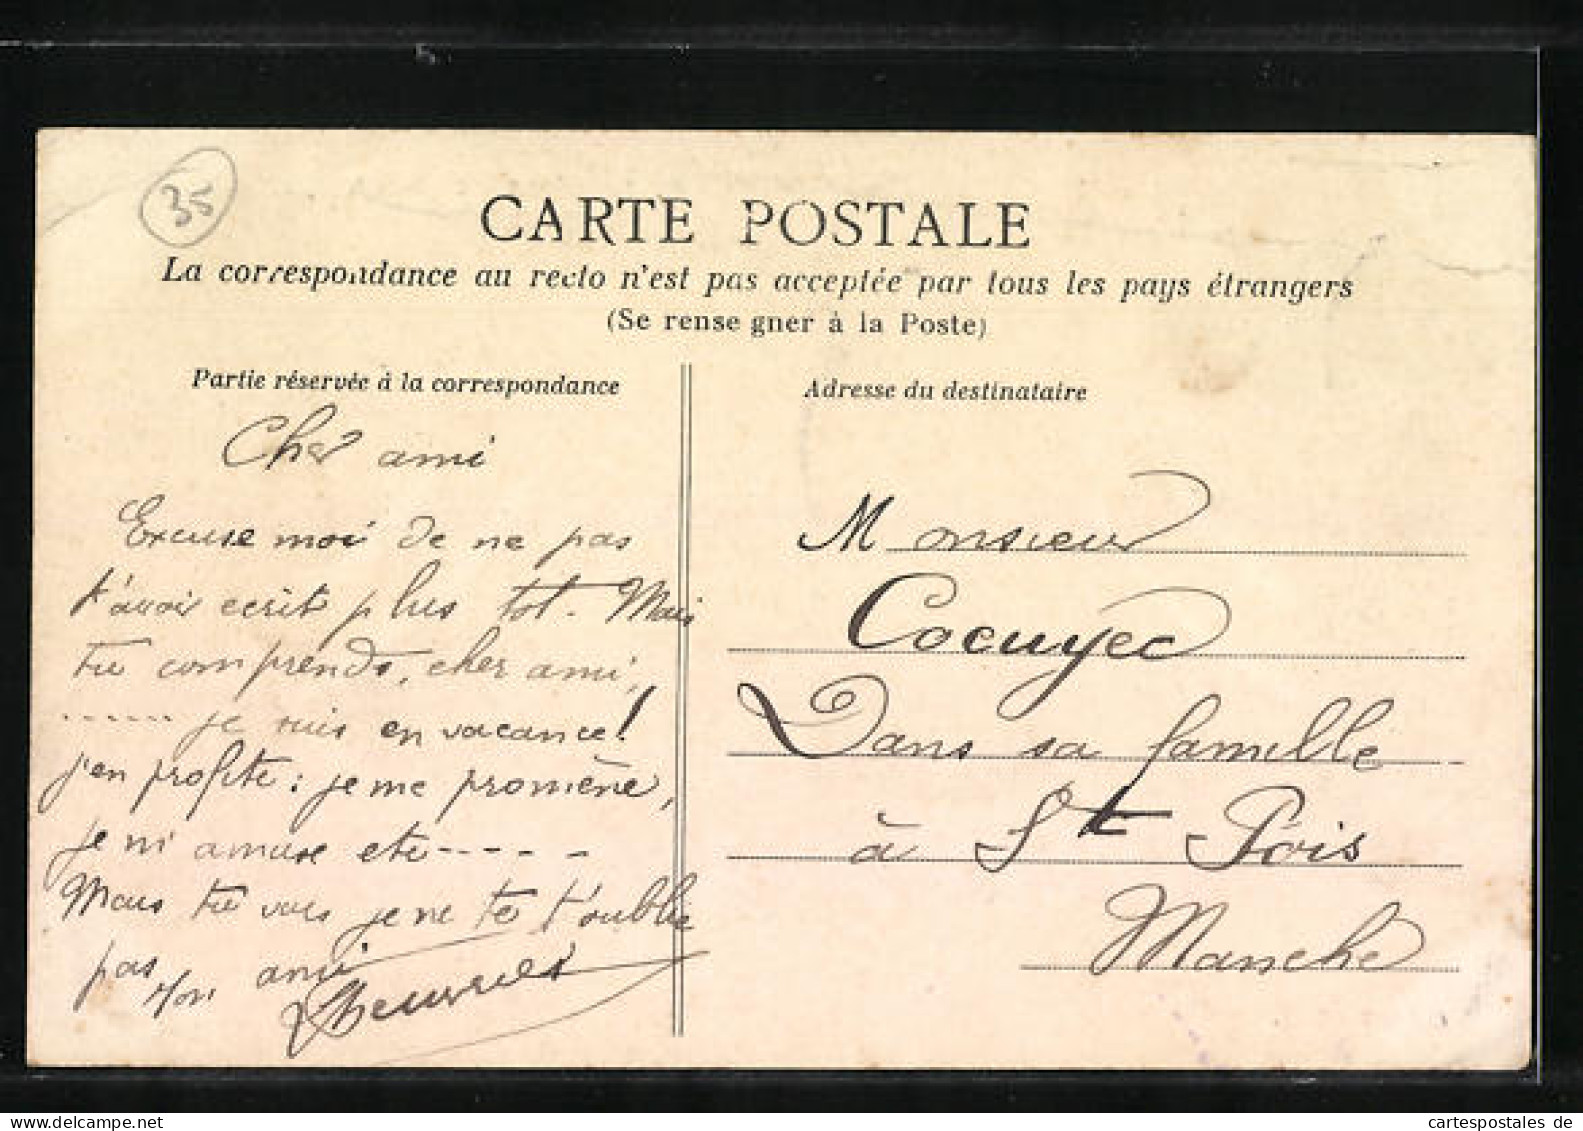 35
CARTE POSTALE
La correspondance au recto n'est pas acceptée par tous les pays étrangers
(Se rense gner à la Poste)
Partie réservée à la correspondance
Adresse du destinataire
Cher ami
Excuse moi de ne pas
t'avoir ecrit plus tot. Mais
tu comprends, cher ami,
------ je suis en vacance!
j'en profite: je me promène,
je m'amuse etc-----
Mais tu vois je ne te t'oublie
pas Mon ami
Monsieur
Cocuyec
Dans sa famille
à St Pois
Manche
cartespostales de